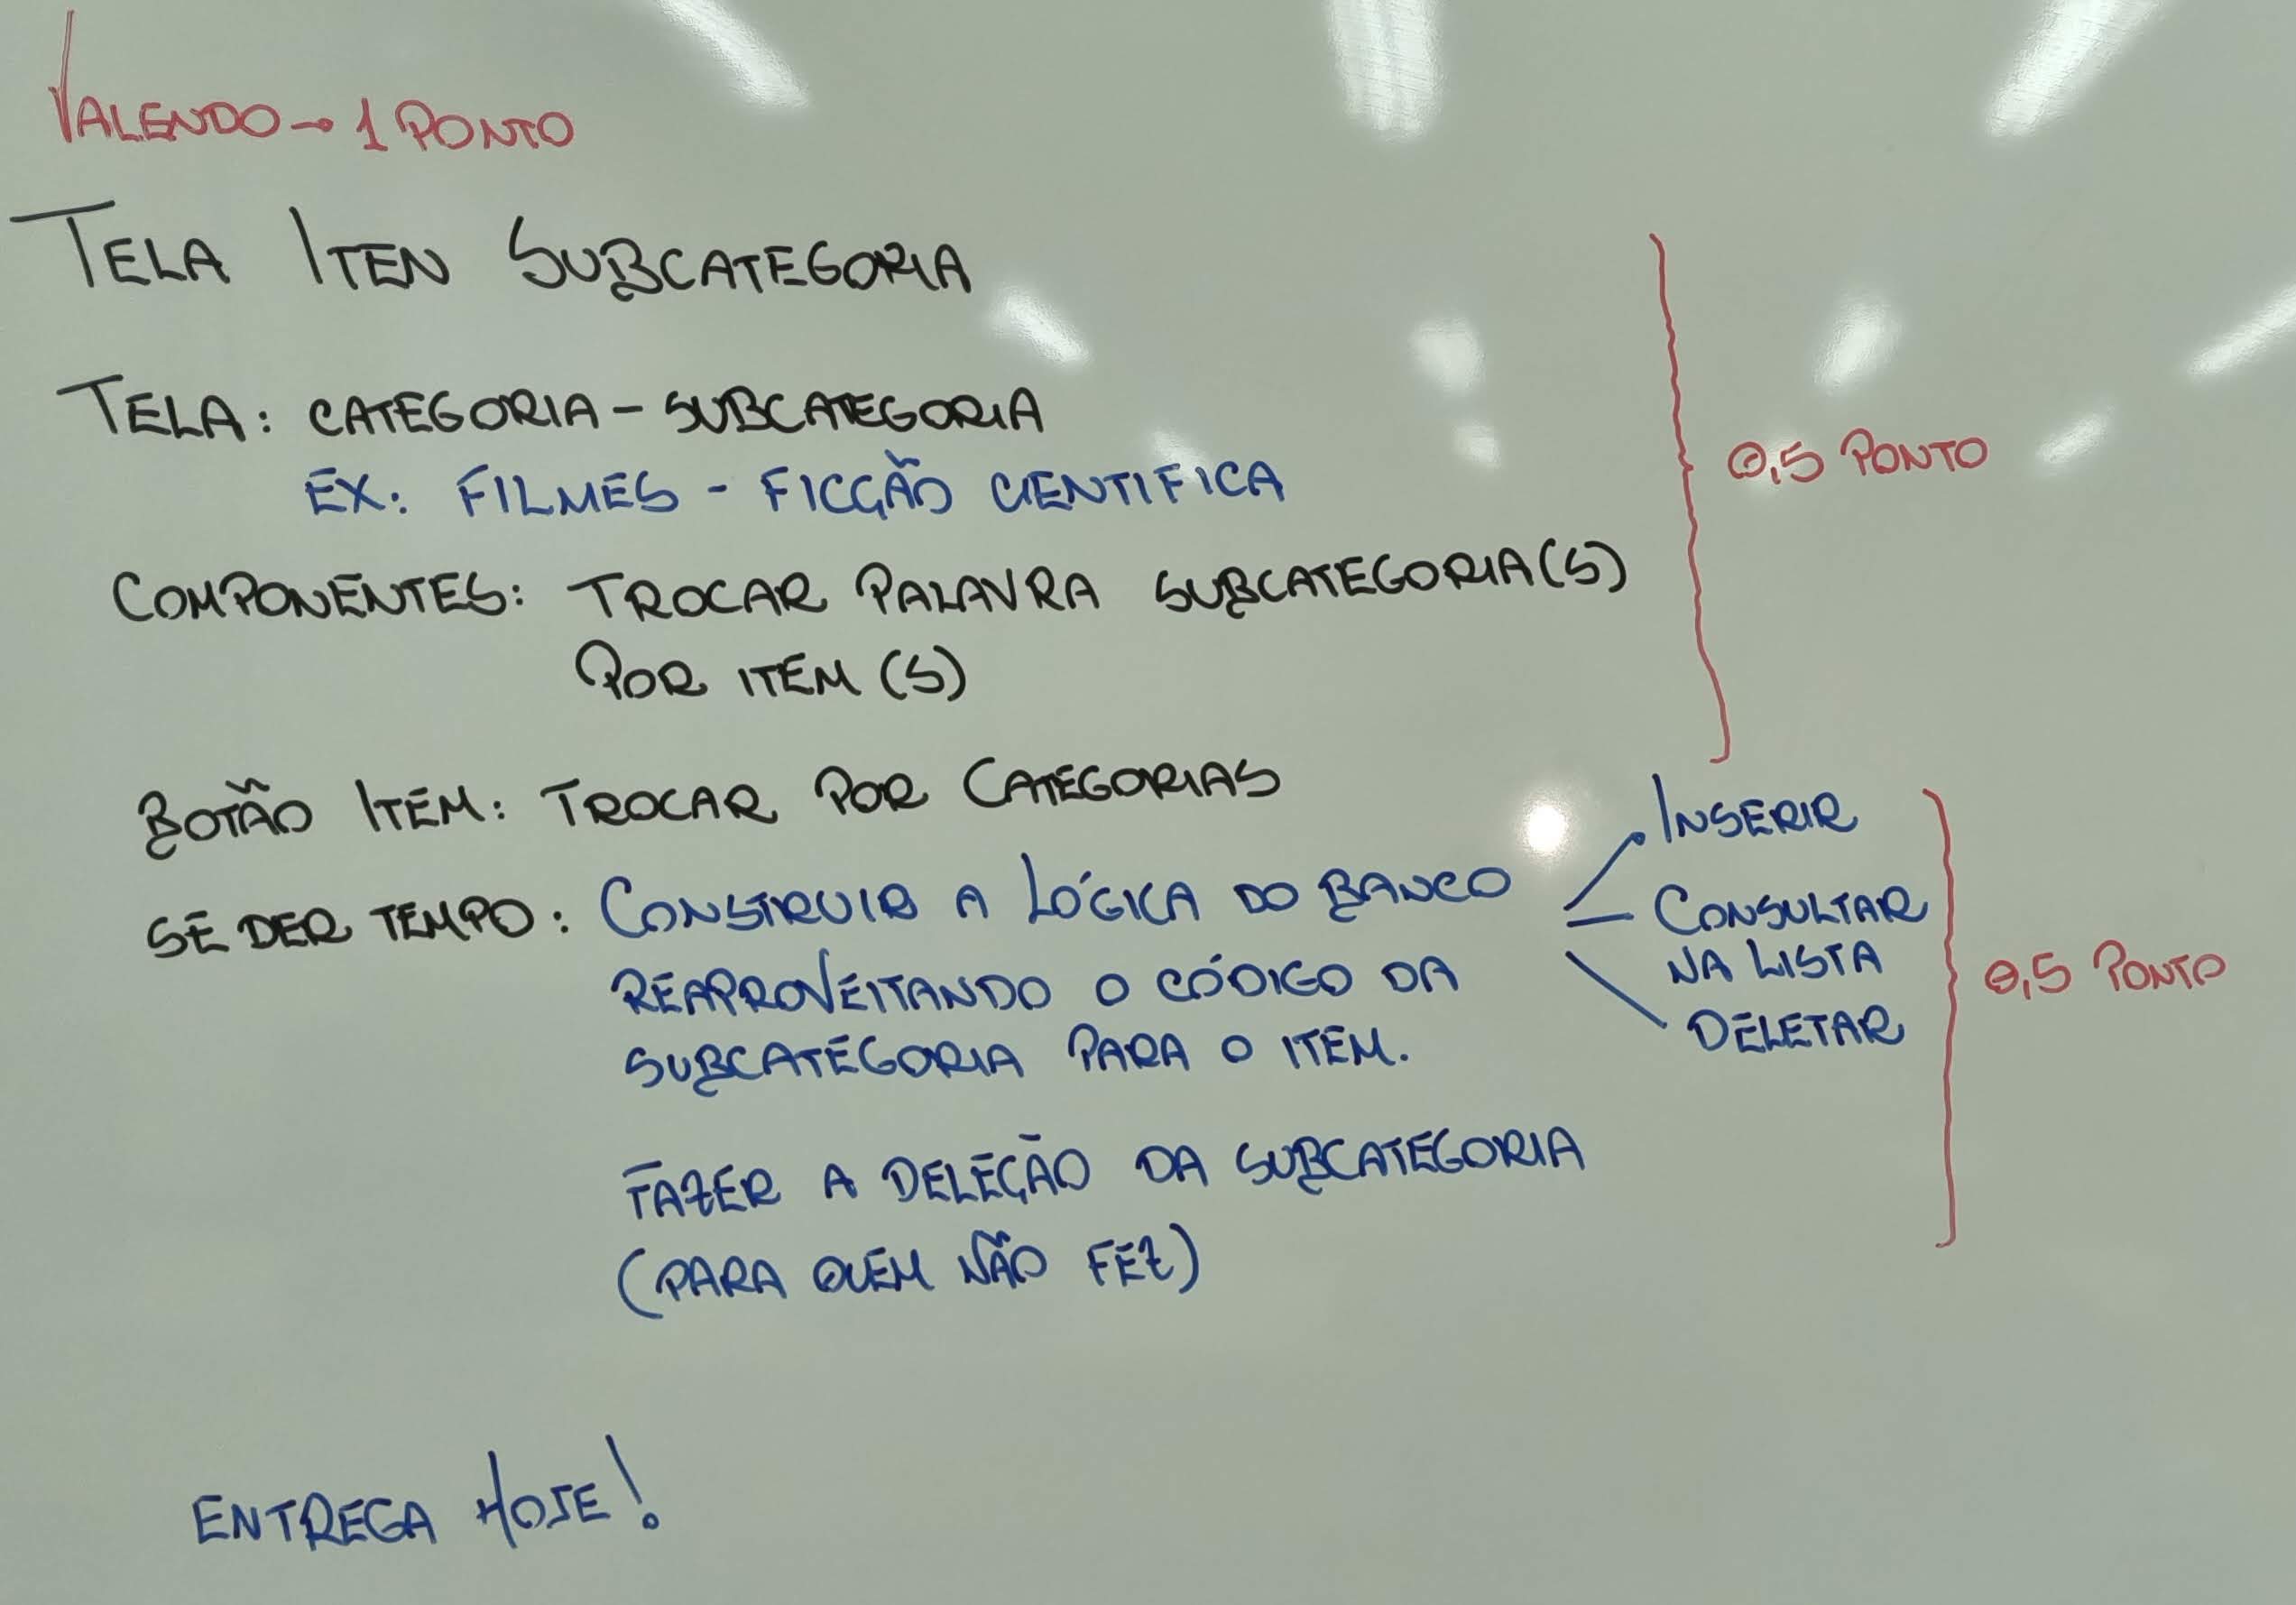 VALENDO → 1 PONTO
TELA ITEN SUBCATEGORIA
TELA: CATEGORIA - SUBCATEGORIA
EX: FILMES - FICÇÃO CIENTIFICA
0,5 PONTO
COMPONENTES: TROCAR PALAVRA SUBCATEGORIA(S)
POR ITEM (S)
BOTÃO ITEM: TROCAR POR CATEGORIAS
SE DER TEMPO: CONSTRUIR A LÓGICA DO BANCO
REAPROVEITANDO O CÓDIGO DA
SUBCATEGORIA PARA O ITEM.
INSERIR
CONSULTAR
NA LISTA
DELETAR
0,5 PONTO
FAZER A DELEÇÃO DA SUBCATEGORIA
(PARA QUEM NÃO FEZ)
ENTREGA HOJE!